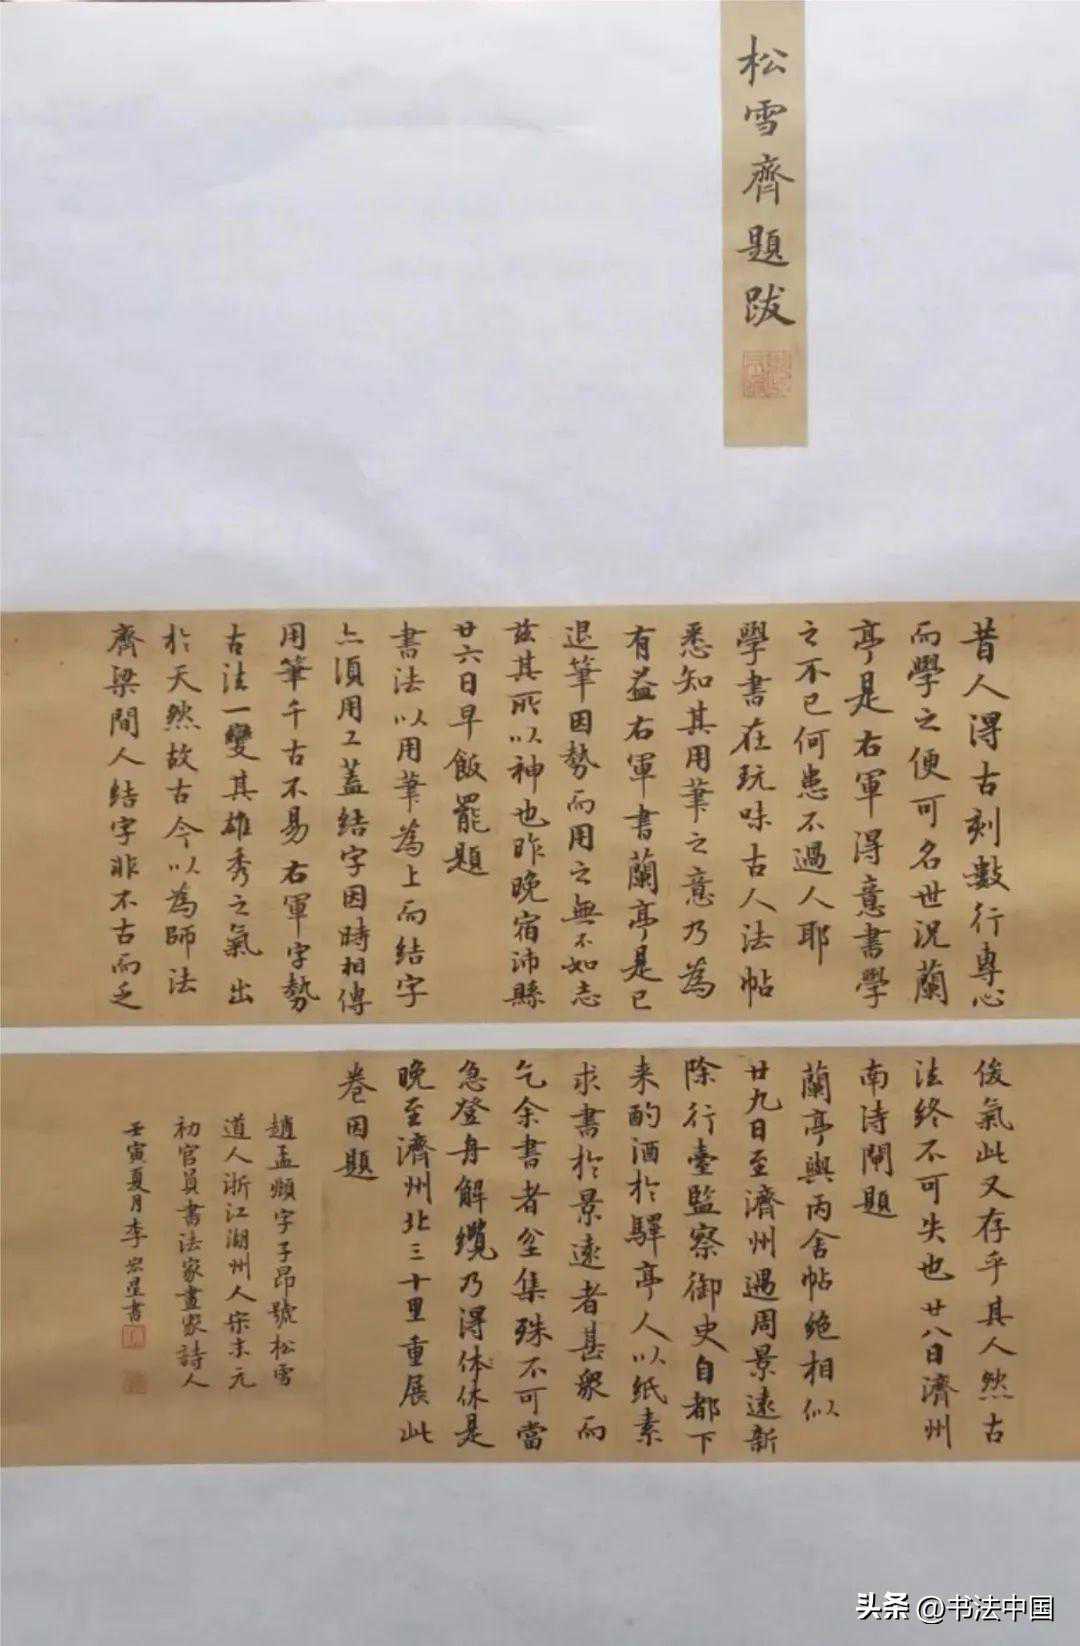 松雪齊題跋
昔人得古刻數行專心
而學之便可名世況蘭
亭是右軍得意書學
之不已何患不過人耶
學書在玩味古人法帖
悉知其用筆之意乃為
有益右軍書蘭亭是已
退筆因勢而用之無不如志
茲其所以神也昨晚宿沛縣
廿六日早飯罷題
書法以用筆為上而結字
亦須用工蓋結字因時相傳
用筆千古不易右軍字勢
古法一變其雄秀之氣出
於天然故古今以為師法
齊梁間人結字非不古而乏
俊氣此又存乎其人然古
法終不可失也廿八日濟州
南待閘題
蘭亭與丙舍帖絕相似
廿九日至濟州遇周景遠新
除行臺監察御史自都下
来酌酒於驛亭人以紙素
求書於景遠者甚衆而
乞余書者坌集殊不可當
急登舟解纜乃得休休是
晚至濟州北三十里重展此
卷因題
趙孟頫字子昂號松雪
道人浙江湖州人宋末元
初官員書法家畫家詩人
壬寅夏月李宏星書
头条 @书法中国